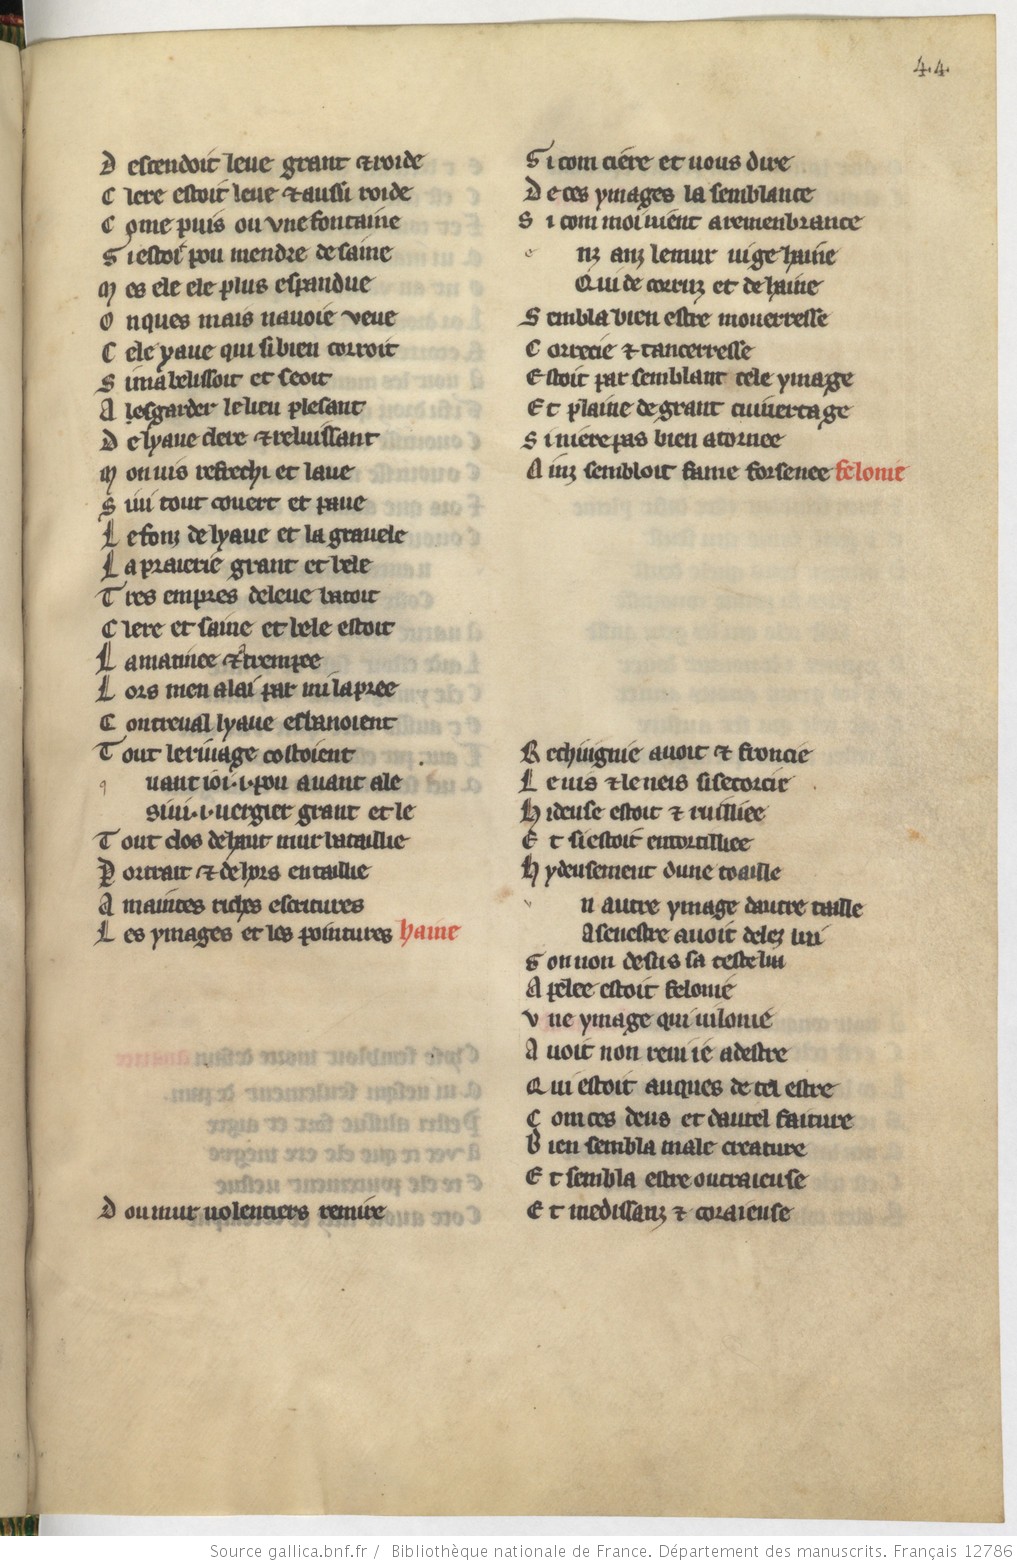 44
D escendoit leue grant &roide
C lere estoit leue &aussi roide
C ome puis ou vne fontaine
S i estoit pou mendre de saine
M es ele ele plus espandue
O nques mais nauoie veue
C ele yaue qui si bien corroit
S i mabelissoit et seoit
A lesgarder le lieu plesant
D e lyaue clere &reluissant
M on uis refreschi et laue
S i ui tout couert et paue
L e fonz de lyaue et la grauele
L a praierie grant et bele
T res empres deleue batoit
C lere et saine et bele estoit
L a matinee &trempee
L ors men alai par mi la pree
C ontreual lyaue esbanoient
T out le riuage costoient
q uant ioi .i. pou auant ale
si ui .i. uergier grant et le
T out clos de haut mur bataillie
P ortrait & dehors entaillie
A maintes riches escritures
L es ymages et les pointures haine
D ou mur uolentiers remire
S i com ciere et uous dire
D e ces ymages la semblance
S i com moi uient a remenbrance
e nz anz le mur ui ge haine
Q ui de corruz et de haine
S embla bien estre mouerresse
C orrecie & tancerresse
E stoit par semblant cele ymage
E t plaine de grant cuuertage
S i niere pas bien atornee
A inz sembloit fame forsenee felonie
R echignie auoit & froncie
L e uis & le neis si secorcie
H ideuse estoit & ruilliee
E t si estoit entortilliee
H ydeusement dune toaille
v n autre ymage dautre taille
A senestre auoit delez lui
S on non desus sa teste lui
A pelee estoit felonie
V ne ymage qui uilonie
A uoit non reui ie a destre
Q ui estoit auques de tel estre
C om ces deus et dautel faiture
B ien sembla male creature
E t sembla estre outraieuse
E t medissanz & coraieuse
Source gallica.bnf.fr / Bibliothèque nationale de France. Département des manuscrits. Français 12786